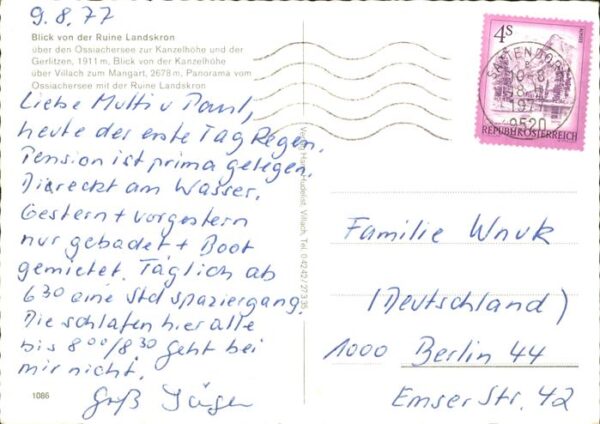 9.8.77
Blick von der Ruine Landskron
über den Ossiachersee zur Kanzelhöhe und der
Gerlitzen, 1911 m, Blick von der Kanzelhöhe
über Villach zum Mangart, 2678 m, Panorama vom
Ossiachersee mit der Ruine Landskron
Liebe Mutti u Paul,
heute der erste Tag Regen.
Pension ist prima gelegen.
Diereckt am Wasser.
Gestern + vorgestern
nur gebadet + Boot
gemietet. Täglich ab
6 30 eine Std spaziergang.
Die schlafen hier alle
bis 8 00/8 30 geht bei
mir nicht.
Gruß
1086
Hudelist, Villach, Tel. 0 42 42 / 273 35
4s
REPUBLIK ÖSTERREICH
SATTENDORF
1977
9520
Familie Wnuk
(Deutschland)
1000 Berlin 44
Emser Str. 42